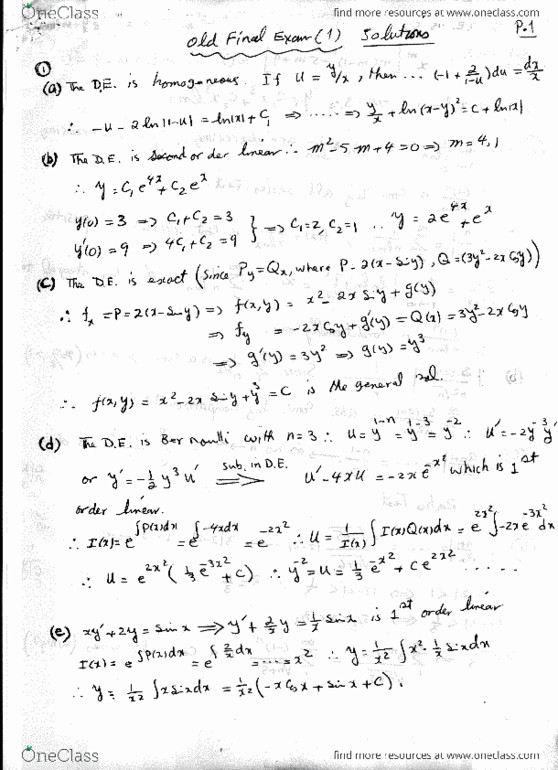 OneClass
find more resources at www.oneclass.com
P.1
Old Final Exam (1) Solutions
①
(a) The D.E. is homogeneous. If u = y/x, then ... (-1 + 2/(1-u)) du = dx/x
∴ -u - 2 ln|1-u| = ln|x| + C₁ ⇒ ..... ⇒ y/x + ln(x-y)² = C + ln|x|
(b) The D.E. is second order linear ∴ m² - 5m + 4 = 0 ⇒ m = 4, 1
∴ y = C₁e^{4x} + C₂e^x
y(0) = 3 ⇒ C₁ + C₂ = 3
y'(0) = 9 ⇒ 4C₁ + C₂ = 9 } ⇒ C₁ = 2, C₂ = 1 ∴ y = 2e^{4x} + e^x
(C) The D.E. is exact (since Py = Qx, where P = 2(x - Siny), Q = (3y² - 2x Cosy))
∴ fx = P = 2(x - Siny) ⇒ f(x,y) = x² - 2x Siny + g(y)
⇒ fy = -2x Cosy + g'(y) = Q(x) = 3y² - 2x Cosy
⇒ g'(y) = 3y² ⇒ g(y) = y³
∴ f(x,y) = x² - 2x Siny + y³ = C is the general sol.
(d) The D.E. is Bernoulli with n = 3 ∴ u = y^{1-n} = y^{1-3} = y^{-2} ∴ u' = -2y^{-3}y'
or y' = -½ y³ u' sub. in D.E. ⇒ u' - 4xu = -2x e^{-x²} which is 1st
order linear.
∴ I(x) = e^{∫P(x)dx} = e^{∫-4xdx} = e^{-2x²} ∴ u = 1/I(x) ∫ I(x)Q(x)dx = e^{2x²} ∫ -2x e^{-3x²} dx
∴ u = e^{2x²} (⅓ e^{-3x²} + C) ∴ y^{-2} = u = ⅓ e^{-x²} + C e^{2x²} ......
(e) xy' + 2y = sinx ⇒ y' + 2/x y = 1/x sinx is 1st order linear
I(x) = e^{∫P(x)dx} = e^{∫ 2/x dx} = ..... = x² ∴ y = 1/x² ∫ x² · 1/x sinx dx
∴ y = 1/x² ∫ x sinx dx = 1/x² (-x Cos x + sinx + C).
OneClass
find more resources at www.oneclass.com